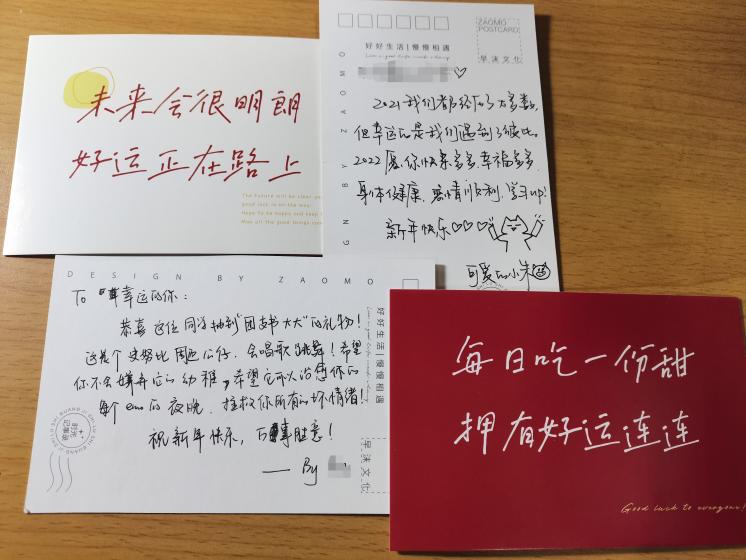 未来会很明朗
好运正在路上
The future will be clear
good luck is on the way
ZAOMO
POSTCARD
早沫文化
好好生活 | 慢慢相遇
DESIGN BY ZAOMO
2021我们都经历了太多数
但幸运的是我们遇到了彼此。
2022愿你快乐多多,幸福多多
身体健康,爱情顺利,学习up!
新年快乐♡♡♡
可爱的小朱
DESIGN BY ZAOMO
To 幸运的你:
恭喜这位同学抽到"团支书大大"的礼物!
这是个史努比周边公仔,会唱歌会跳舞!希望
你不会嫌弃它的幼稚,希望它可以治愈你的
每个emo的夜晚,拯救你所有的坏情绪!
祝新年快乐,万事胜意!
—— By
好好生活 | 慢慢相遇
早沫文化
每日吃一份甜
押有好运连连
Good luck to everyone!